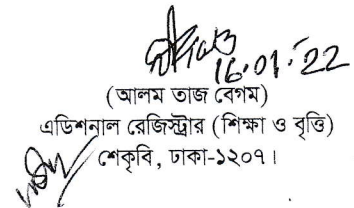 16.01.22
(আলম তাজ বেগম)
এডিশনাল রেজিস্ট্রার (শিক্ষা ও বৃত্তি)
শেকৃবি, ঢাকা-১২০৭।